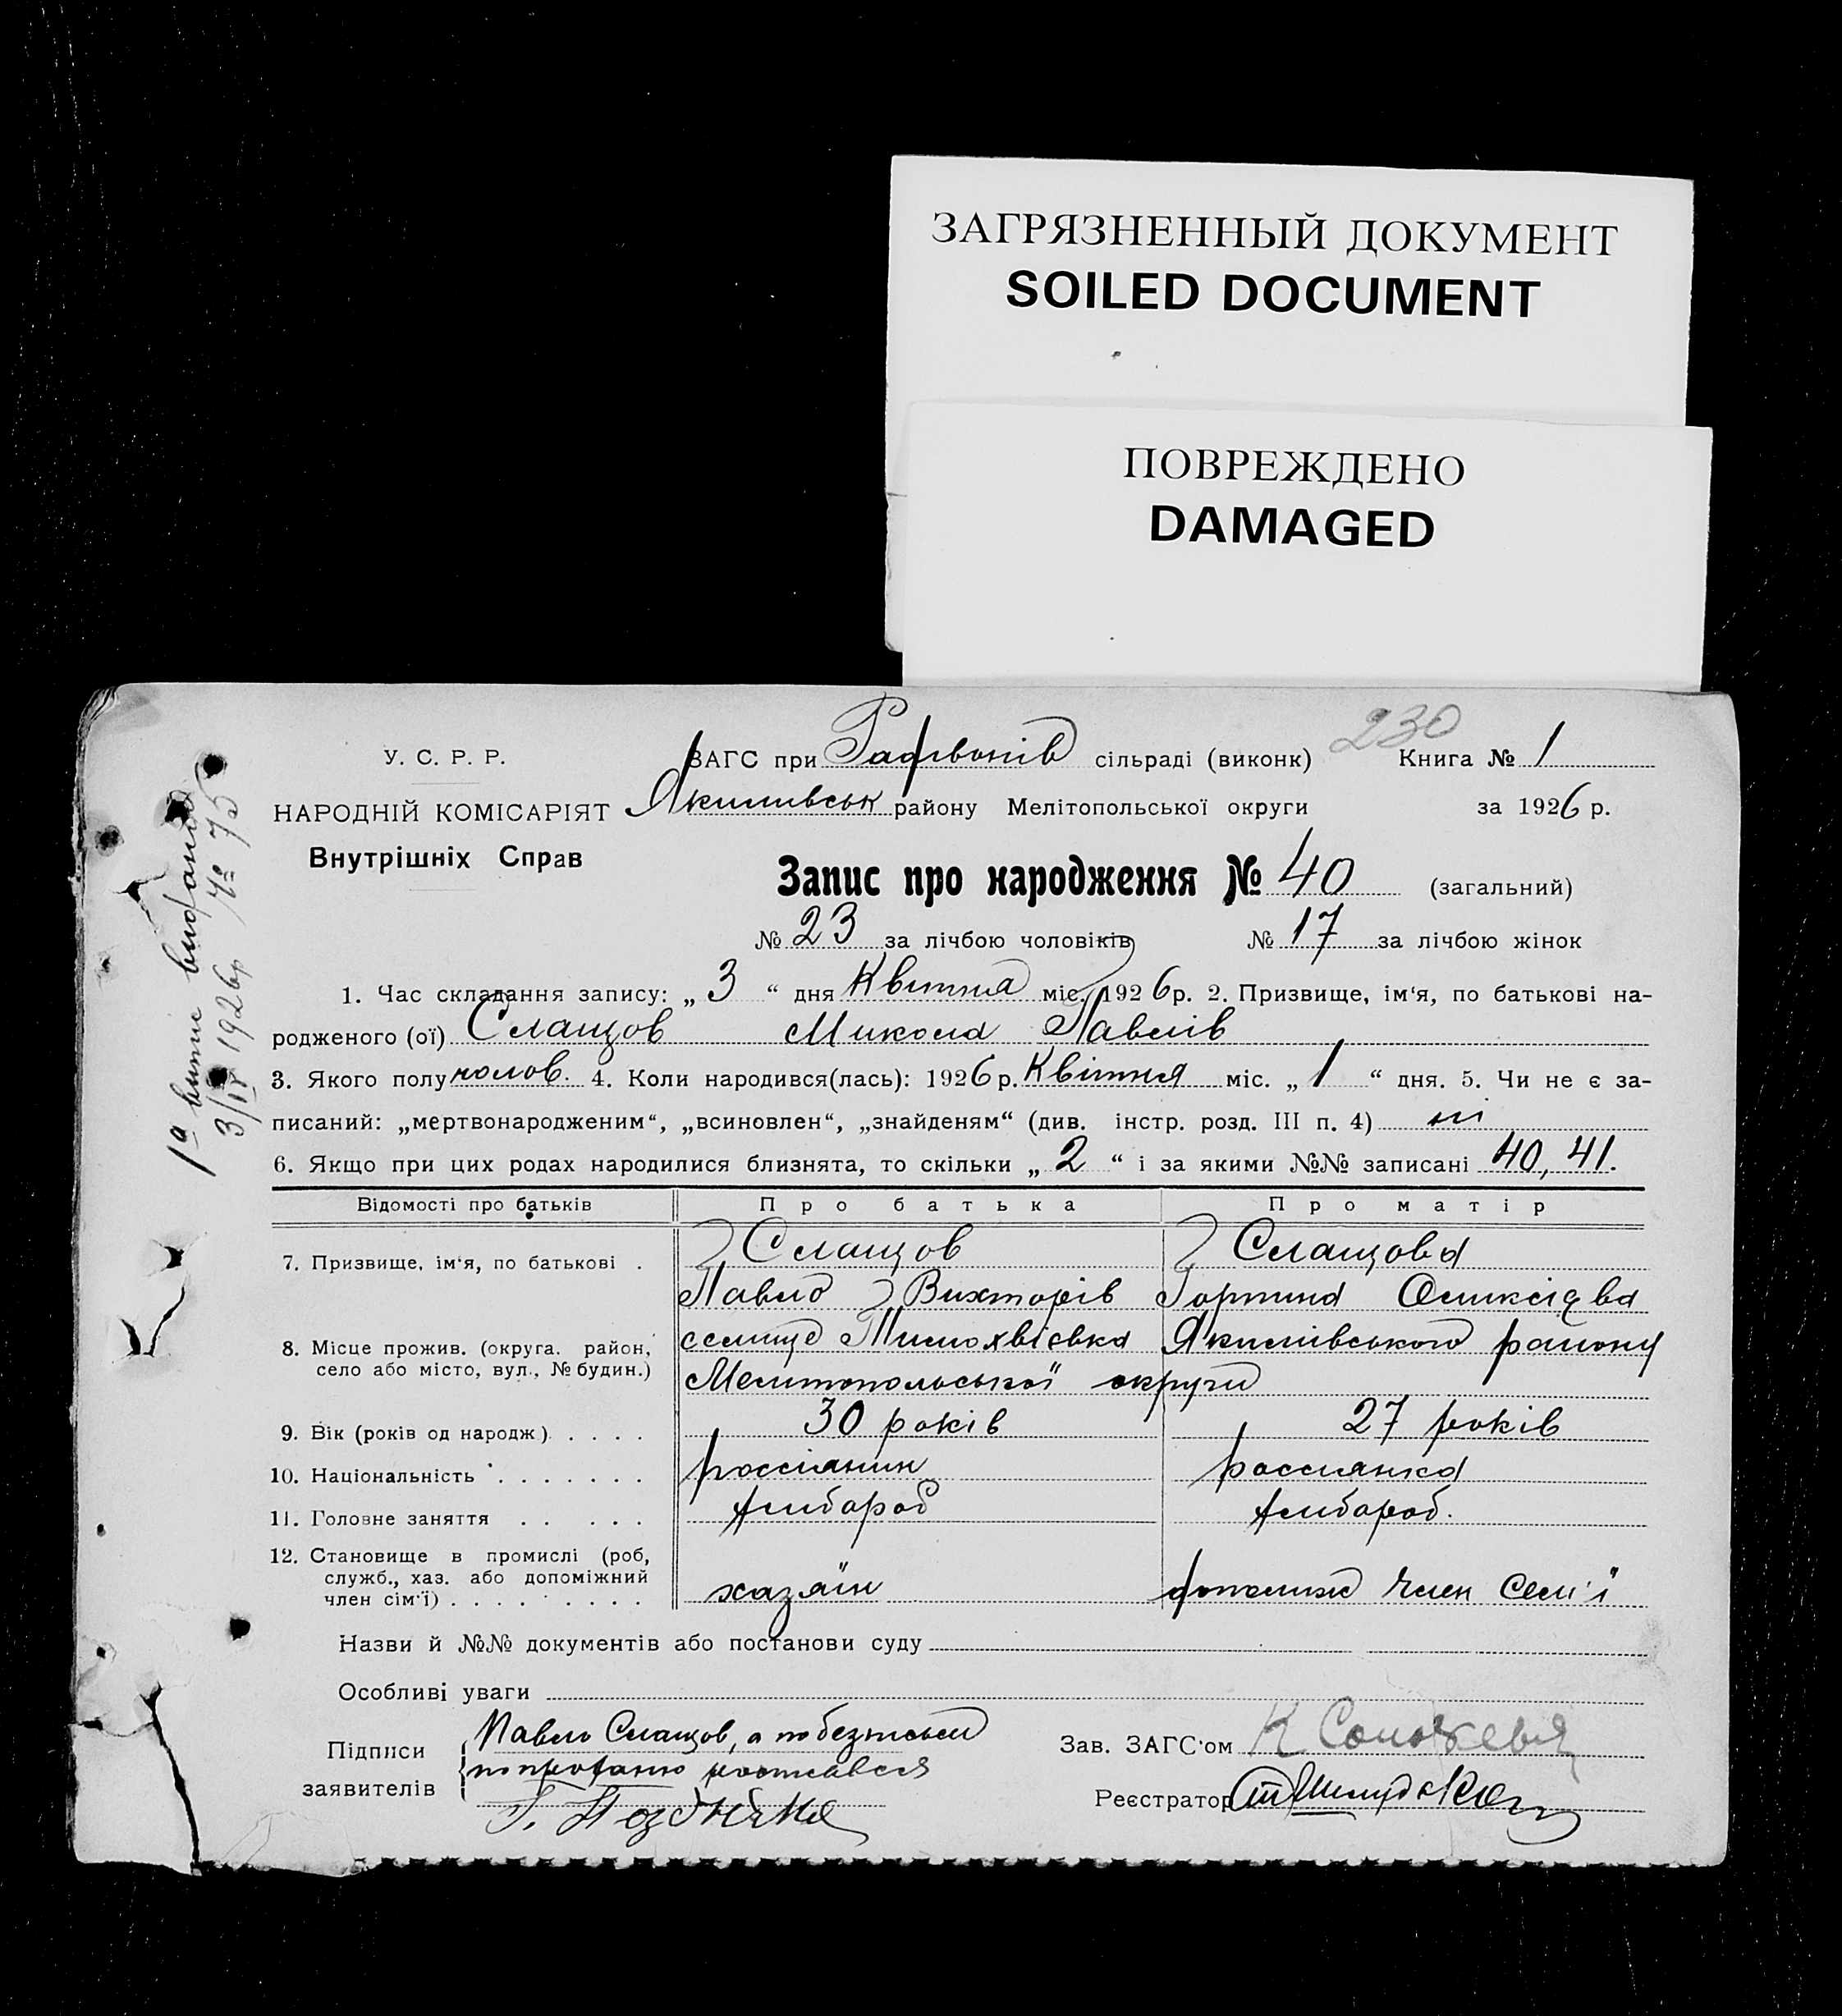 ЗАГРЯЗНЕННЫЙ ДОКУМЕНТ
SOILED DOCUMENT
ПОВРЕЖДЕНО
DAMAGED
230
У. С. Р. Р.
ЗАГС при сільраді (виконк) Книга № 1
НАРОДНІЙ КОМІСАРІЯТ Якимивськ району Мелітопольської округи за 1926 р.
Внутрішніх Справ
Запис про народження № 40 (загальний)
№ 23 за лічбою чоловіків № 17 за лічбою жінок
1. Час складання запису: „ 3 “ дня Квітня міс. 1926 р. 2. Призвище, ім‘я, по батькові на-
родженого (ої) Слащов Микола Павлів
3. Якого полу чолов. 4. Коли народився(лась): 1926 р. Квітня міс. „ 1 “ дня. 5. Чи не є за-
писаний: „мертвонародженим“, „всиновлен“, „знайденям“ (див. інстр. розд. III п. 4) ні
6. Якщо при цих родах народилися близнята, то скільки „ 2 “ і за якими №№ записані 40, 41.
Відомості про батьків Про батька Про матір
7. Призвище, ім‘я, по батькові . Слащов Слащова
Павло Вихторів Горпина
8. Місце прожив. (округа. район, село або місто, вул., № будин.) селище Тимохвієвка Якимівського району
Мелитопольської округи
9. Вік (років од народж.) . . . . 30 років 27 років
10. Національність . . . . . . . россіянин россіянка
11. Головне заняття . . . . . хлібороб хлібороб.
12. Становище в промислі (роб,
служб., хаз. або допоміжний
член сім‘ї) . . . . . . . . . хазяїн допоміжн член сем'ї
Назви й №№ документів або постанови суду
Особливі уваги
Підписи заявителів Павло Слащов, а по
Зав. ЗАГС‘ом К
Реєстратор
1а випис видана
3/IV 1926р № 75